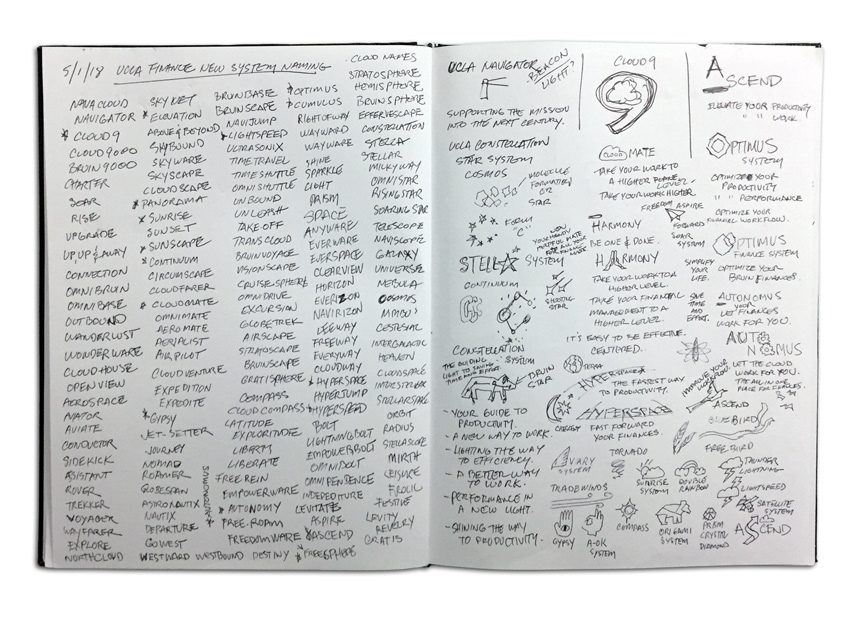 5/1/18 UCLA FINANCE NEW SYSTEM NAMING
NOVACLOUD
NAVIGATOR
* CLOUD 9
CLOUD 9000
BRUIN 9000
CHARTER
SOAR
RISE
UPGRADE
UP UP & AWAY
CONNECTION
OMNIBRUIN
OMNIBASE
OUTBOUND
WANDERLUST
WONDERWARE
CLOUDHOUSE
OPENVIEW
AEROSPACE
AVATOR
AVIATE
CONDUCTOR
SIDEKICK
ASISTANT
ROVER
TREKKER
VOYAGER
WAYFARER
EXPLORE
NORTHCLOUD
SKYNET
* ELEVATION
ABOVE & BEYOND
SKYBOUND
SKYWARE
SKYSCAPE
CLOUDSCAPE
* PANORAMA
* SUNRISE
SUNSET
* SUNSCAPE
* CONTINUUM
CIRCUMSCAPE
CLOUDFARER
* CLOUDMATE
OMNIMATE
AEROMATE
AERIALIST
AIRPILOT
CLOUDVENTURE
EXPEDITION
EXPEDITE
* GYPSY
JET-SETTER
JOURNEY
NOMAD
ROAMER
GLOBESPAN
ASTRONAUTIX
NAUTIX
DEPARTURE
GO WEST
WESTWARD WESTBOUND DESTINY
BRUINBASE
BRUINSCAPE
NAVIJUMP
* LIGHTSPEED
ULTRASONIX
TIMETRAVEL
TIMESHUTTLE
OMNISHUTTLE
UNBOUND
UNLEASH
TAKE OFF
TRANSCLOUD
BRUINVOYAGE
VISIONSCAPE
CRUISE-SPHERE
OMNIDRIVE
EXCURSION
GLOBETREK
AIRSCAPE
STRATOSCAPE
BRUINSCAPE
GRATISPHERE
COMPASS
CLOUD COMPASS
LATITUDE
EXPLORITUDE
LIBERTY
LIBERATE
FREE REIN
EMPOWERWARE
* AUTONOMY
FREE-ROAM
FREEDOMWARE
* OPTIMUS
* CUMULUS
RIGHTOFWAY
WAYWARD
WAYWARE
SHINE
SPARKLE
LIGHT
PRISM
SPACE
ANYWARE
EVERWARE
EVERSPACE
CLEARVIEW
HORIZON
EVERIZON
NAVIRIZON
LEEWAY
FREEWAY
EVERYWAY
CLOUDWAY
* HYPERSPACE
HYPERJUMP
* HYPERSPEED
BOLT
LIGHTNING BOLT
EMPOWERBOLT
OMNIBOLT
OMNIPENSENCE
INDEPENTURE
LEVITATE
ASPIRE
* ASCEND
* FREESPHERE
CLOUD NAMES
STRATOSPHERE
HEMISPHERE
BRUINSPHERE
EFFERVESCAPE
CONSTELLATION
STELLA
STELLAR
MILKYWAY
OMNISTAR
RISING STAR
SOARING STAR
TELESCOPE
NAVISCOPE
GALAXY
UNIVERSE
NEBULA
COSMOS
CELESTIAL
INTERGALACTIC
HEAVEN
CLOUDSPACE
STELLARSPACE
ORBIT
RADIUS
STELLASCOPE
MIRTH
LEISURE
FROLIC
FESTIVE
LEVITY
REVELRY
GRATIS
UCLA NAVIGATOR
BEACON
LIGHT?
SUPPORTING THE MISSION
INTO THE NEXT CENTURY.
UCLA CONSTELLATION
STAR SYSTEM
COSMOS
MOLECULE
FORMATION
OR
STAR
FORM
"C"
STELLA SYSTEM
CONTINUUM
SHOOTING
STAR
CONSTELLATION
SYSTEM
THE GUIDING
LIGHT TO SAVING
TIME AND EFFORT.
BRUIN
STAR
- YOUR GUIDE TO
PRODUCTIVITY.
- A NEW WAY TO WORK.
- LIGHTING THE WAY
TO EFFICIENCY.
- A BETTER WAY
TO WORK.
- PERFORMANCE IN
A NEW LIGHT.
- SHINING THE WAY
TO PRODUCTIVITY.
CLOUD 9
9
CLOUD MATE
TAKE YOUR WORK TO
A HIGHER PLANE.
LEVEL.
TAKE YOUR WORK HIGHER
HARMONY
BE ONE & DONE.
HARMONY
TAKE YOUR WORK TO A
HIGHER LEVEL.
TAKE YOUR FINANCIAL
MANAGEMENT TO A
HIGHER LEVEL.
IT'S EASY TO BE EFFECTIVE.
CENTERED.
HYPERSPACE
THE FASTEST WAY
TO PRODUCTIVITY.
HYPERSPACE
FAST FORWARD
YOUR FINANCES.
SYSTEM
TORNADO
TRADEWINDS
SUNRISE
SYSTEM
DOUBLE
RAINBOW
GYPSY
A-OK
SYSTEM
COMPASS
ORIGAMI
SYSTEM
PRISM
CRYSTAL
DIAMOND
ASCEND
ELEVATE YOUR PRODUCTIVITY
" " WORK
OPTIMUS
SYSTEM
OPTIMIZE YOUR
PRODUCTIVITY
" " PERFORMANCE
OPTIMIZE YOUR
FINANCIAL WORKFLOW.
FREEDOM
ASPIRE
FORWARD
SOAR
SYSTEM
OPTIMUS
FINANCE SYSTEM
SIMPLIFY
YOUR
LIFE.
OPTIMIZE YOUR
BRUIN FINANCES.
SAVE
TIME
AND
EFFORT.
AUTONOMUS
LET YOUR FINANCES
WORK FOR YOU.
AUTONOMUS
LET THE CLOUD
WORK FOR YOU.
THE ALL IN ONE
IMPROVE YOUR
WORKFLOW.
ASCEND
BLUEBIRD
FREEBIRD
THUNDER
LIGHTNING
LIGHTSPEED
SATELLITE
SYSTEM
ASCEND